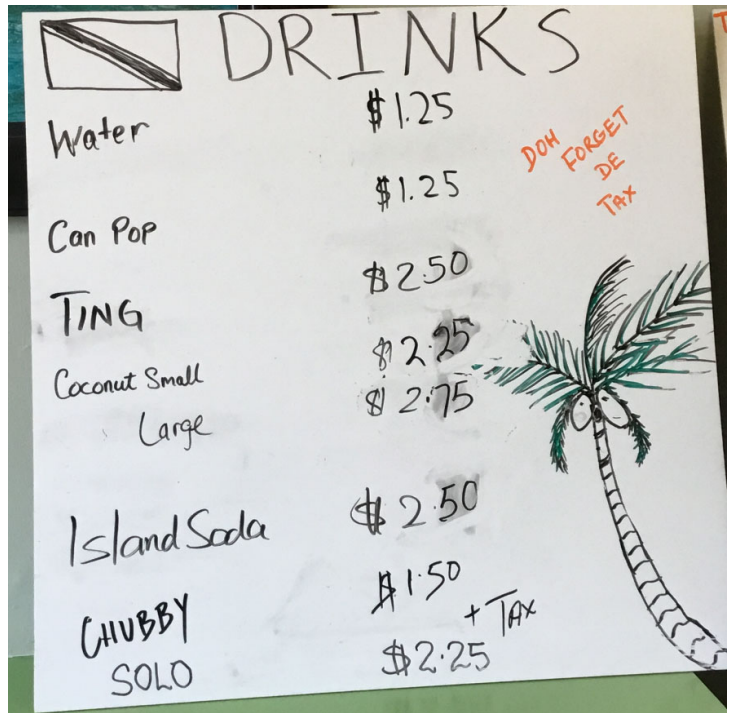 DRINKS
Water $1.25
Can Pop $1.25
TING $2.50
Coconut Small $2.25
Large $2.75
Island Soda $2.50
CHUBBY $1.50
+ TAX
SOLO $2.25
DOH
FORGET
DE
TAX